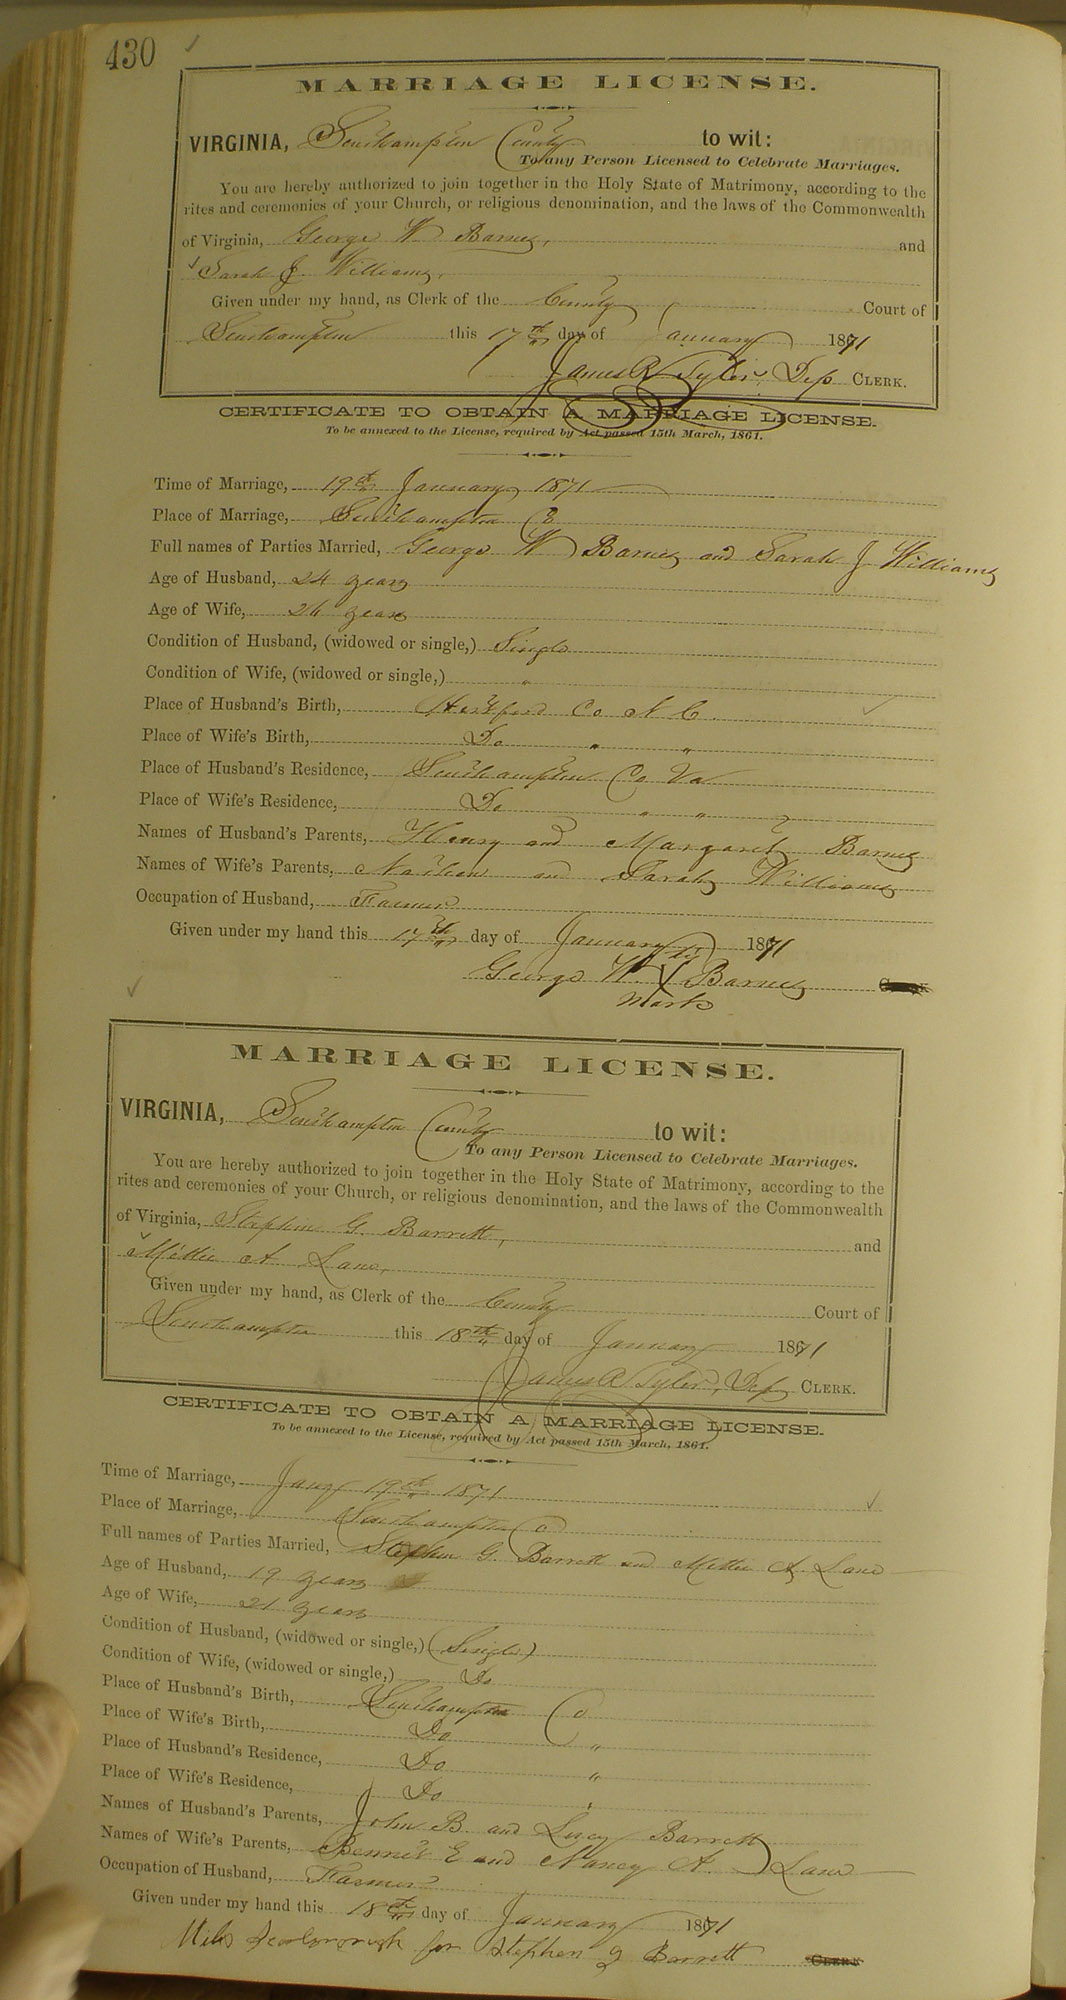 430
MARRIAGE LICENSE.
VIRGINIA, Southampton County to wit:
To any Person Licensed to Celebrate Marriages.
You are hereby authorized to join together in the Holy State of Matrimony, according to the
rites and ceremonies of your Church, or religious denomination, and the laws of the Commonwealth
of Virginia, George W Barnes, and
Sarah J. Williams,
Given under my hand, as Clerk of the County Court of
Southampton this 17th day of January 1871
James R Tyler, Dep CLERK.
CERTIFICATE TO OBTAIN A MARRIAGE LICENSE.
To be annexed to the License, required by Act passed 15th March, 1861.
Time of Marriage, 19th January 1871
Place of Marriage, Southampton Co
Full names of Parties Married, George W Barnes and Sarah J Williams
Age of Husband, 24 years
Age of Wife, 26 years
Condition of Husband, (widowed or single,) Single
Condition of Wife, (widowed or single,) "
Place of Husband's Birth, Hertford Co N C
Place of Wife's Birth, Do " "
Place of Husband's Residence, Southampton Co Va
Place of Wife's Residence, Do " "
Names of Husband's Parents, Henry and Margaret Barnes
Names of Wife's Parents, Nathan and Sarah Williams
Occupation of Husband, Farmer
Given under my hand this 17th day of January 1871
his
George W. X Barnes CLERK
mark
MARRIAGE LICENSE.
VIRGINIA, Southampton County to wit:
To any Person Licensed to Celebrate Marriages.
You are hereby authorized to join together in the Holy State of Matrimony, according to the
rites and ceremonies of your Church, or religious denomination, and the laws of the Commonwealth
of Virginia, Stephen G. Barrett, and
Mittie A Lane,
Given under my hand, as Clerk of the County Court of
Southampton this 18th day of January 1871
James R Tyler, Dep CLERK.
CERTIFICATE TO OBTAIN A MARRIAGE LICENSE.
To be annexed to the License, required by Act passed 15th March, 1861.
Time of Marriage, Jany 19th 1871
Place of Marriage, Southampton Co
Full names of Parties Married, Stephen G. Barrett and Mittie A. Lane
Age of Husband, 19 years
Age of Wife, 21 years
Condition of Husband, (widowed or single,) (Single)
Condition of Wife, (widowed or single,) Do
Place of Husband's Birth, Southampton Co
Place of Wife's Birth, Do "
Place of Husband's Residence, Do "
Place of Wife's Residence, Do "
Names of Husband's Parents, John B. and Lucy Barrett
Names of Wife's Parents, Bennet E and Nancy A. Lane
Occupation of Husband, Farmer
Given under my hand this 18th day of January 1871
Miles Scarborough for Stephen G Barrett CLERK